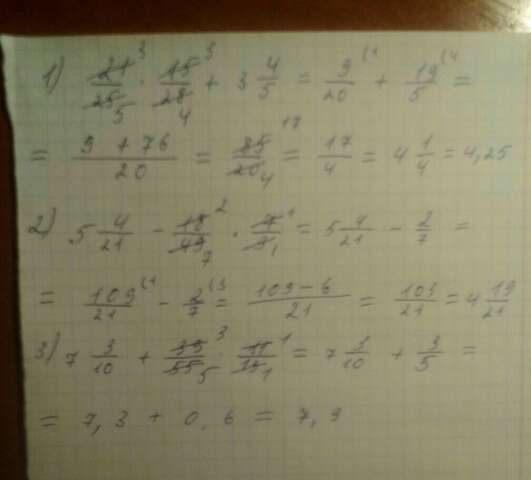 1) 21/25 · 15/28 + 3 4/5 = 9/20 + 19/5 =
= 9 + 76/20 = 85/20 = 17/4 = 4 1/4 = 4,25
2) 5 4/21 - 18/49 · 7/9 = 5 4/21 - 2/7 =
= 109/21 - 2/7 = 109 - 6/21 = 103/21 = 4 19/21
3) 7 3/10 + 39/55 · 11/13 = 7 3/10 + 3/5 =
= 7,3 + 0,6 = 7,9